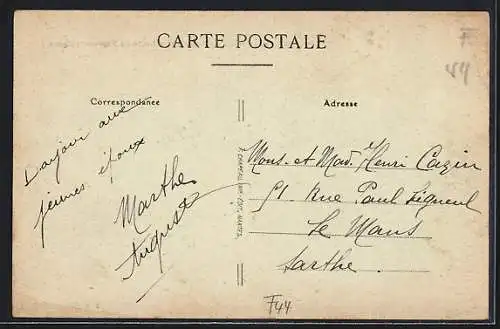 CARTE POSTALE
Correspondance
Adresse
aux
jeunes époux
Marthe
Auguste
Mons. et Mad. Henri Cazin
51 Rue Paul Ligneul
Le Mans
Sarthe
F44